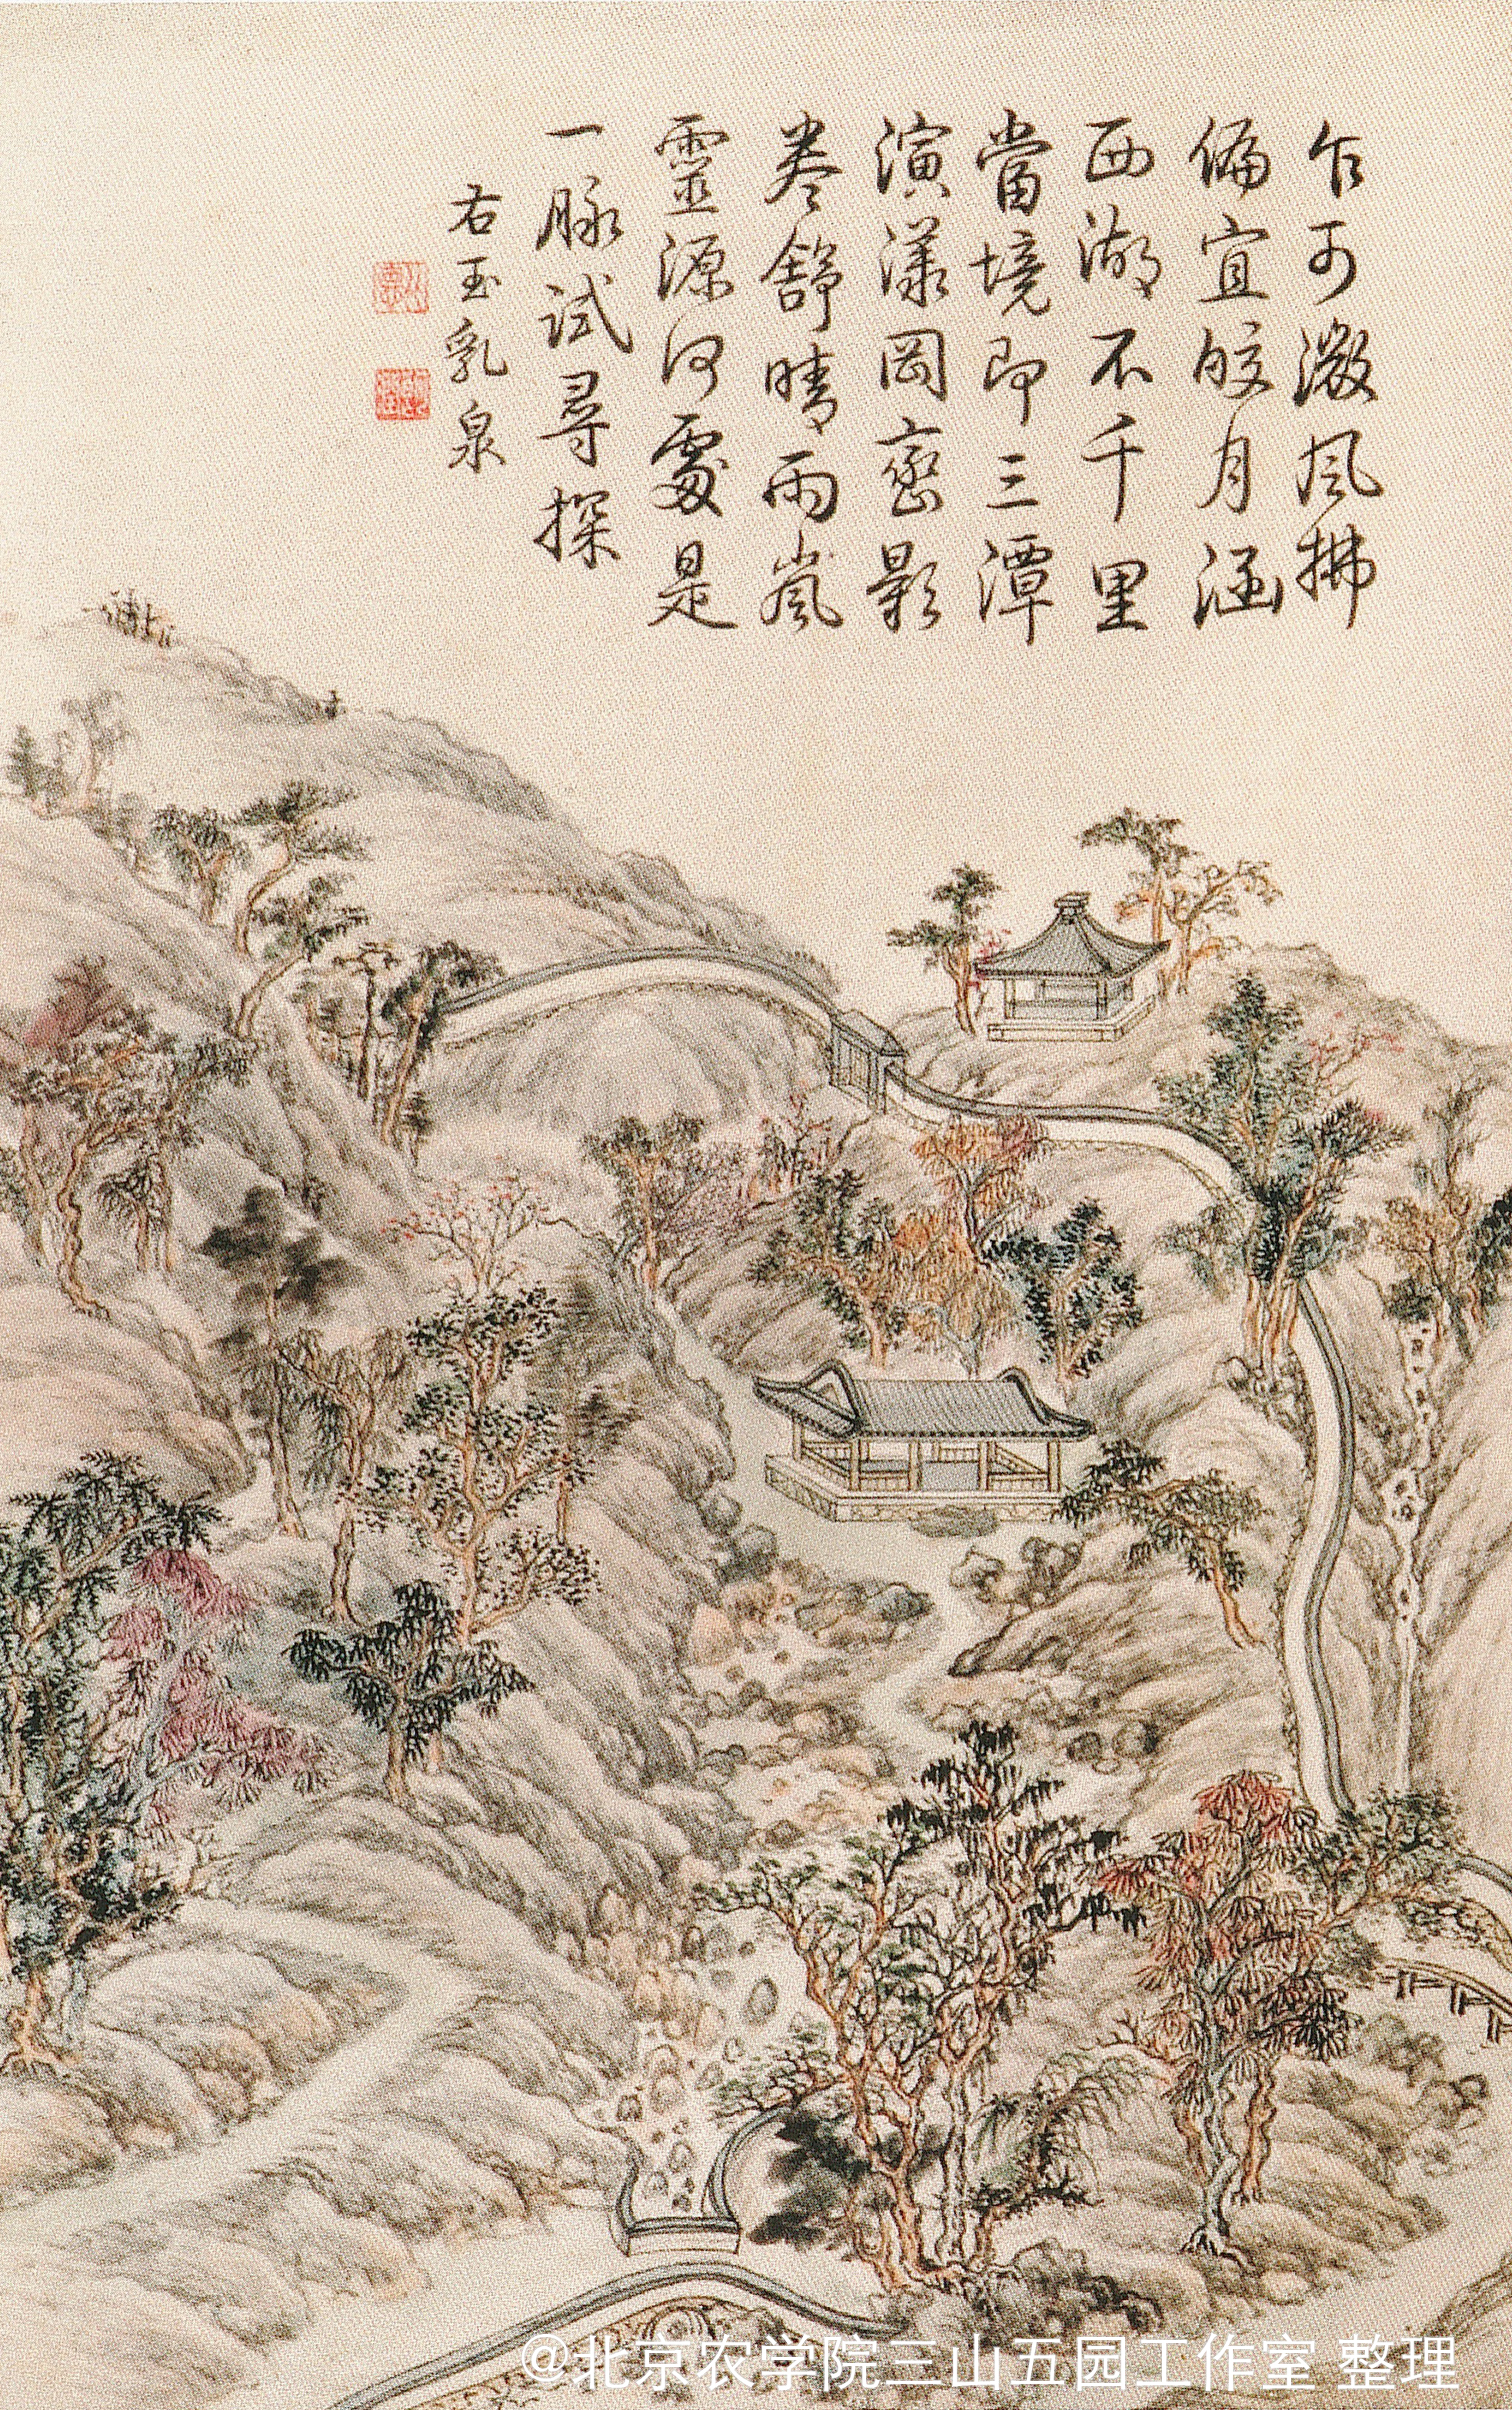 乍可激風拂
偏宜皎月涵
西湖不千里
當境即三潭
演漾岡巒影
卷舒晴雨嵐
靈源何處是
一脉試尋探
右玉乳泉
@北京农学院三山五园工作室 整理